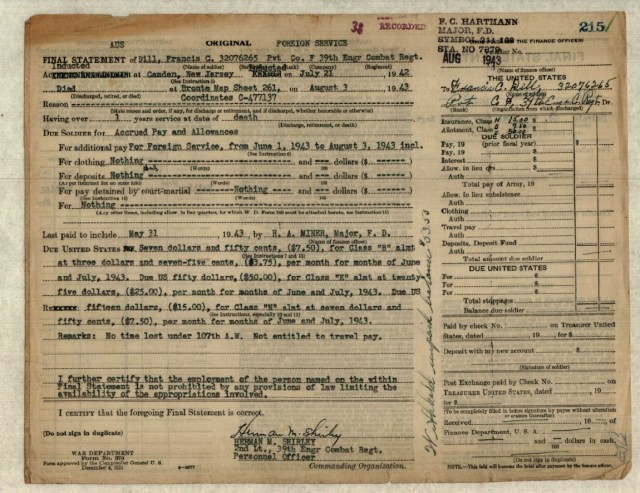 38 RECORDED
AUS ORIGINAL FOREIGN SERVICE
FINAL STATEMENT OF Dill, Francis C. 32076265 Pvt Co. F 39th Engr Combat Regt.
Inducted
at Camden, New Jersey on July 21 1942
Died at Bronte Map Sheet 261, on August 3 1943
(Discharged, retired, or died)
Reason Coordinates C-477137
Having over 1 years service at date of death
(Discharge, retirement, or death)
DUE SOLDIER FOR Accrued Pay and Allowances
For additional pay For Foreign Service, from June 1, 1943 to August 3, 1943 incl.
For clothing Nothing and dollars ($ )
For deposits Nothing and dollars ($ )
For pay detained by court-martial Nothing and dollars ($ )
For Nothing
Last paid to include May 31 1943 by H. A. MINER, Major, F. D.
DUE UNITED STATES Seven dollars and fifty cents, ($7.50), for Class "B" almt
at three dollars and seven-five cents, ($3.75), per month for months of June
and July, 1943. Due US fifty dollars, ($50.00), for Class "E" almt at twenty-
five dollars, ($25.00), per month for months of June and July, 1943. Due US
fifteen dollars, ($15.00), for Class "N" almt at seven dollars and
fifty cents, ($7.50), per month for months of June and July, 1943.
Remarks: No time lost under 107th A.W. Not entitled to travel pay.
I further certify that the employment of the person named on the within
Final Statement is not prohibited by any provisions of law limiting the
availability of the appropriations involved.
I CERTIFY that the foregoing Final Statement is correct.
(Do not sign in duplicate)
Herman M. Shirley
HERMAN M. SHIRLEY
2nd Lt., 39th Engr Combat Regt.
Personnel Officer
Commanding Organization.
WAR DEPARTMENT
Form No. 370
Form approved by the Comptroller General U. S.
F. C. HARTMANN
MAJOR, F.D.
SYMBOL 211-188
STA. NO 7879
AUG 1943
215
THE UNITED STATES
To Francis C. Dill, 32076265
Dr.
Insurance, Class N 15.00
Allotment, Class
DUE SOLDIER
Pay, 19 (prior fiscal year)
Pay, 19
Interest
Allow. in lieu qrs
Auth
Total pay of Army, 19
Allow. in lieu subsistence
Auth
Clothing
Travel pay
Auth
Deposits, Deposit Fund
Total amount due soldier
DUE UNITED STATES
For
For
For
Total stoppages
Balance due soldier
Paid by check No. on Treasurer United
States, dated , 19 , for $
Deposit with my new account $
(Signature of soldier)
Post Exchange paid by Check No. on
TREASURER UNITED STATES, dated , 19
for $
Received, 19 of
Finance Department, U. S. A.
and dollars in cash.
(Do not sign in duplicate)